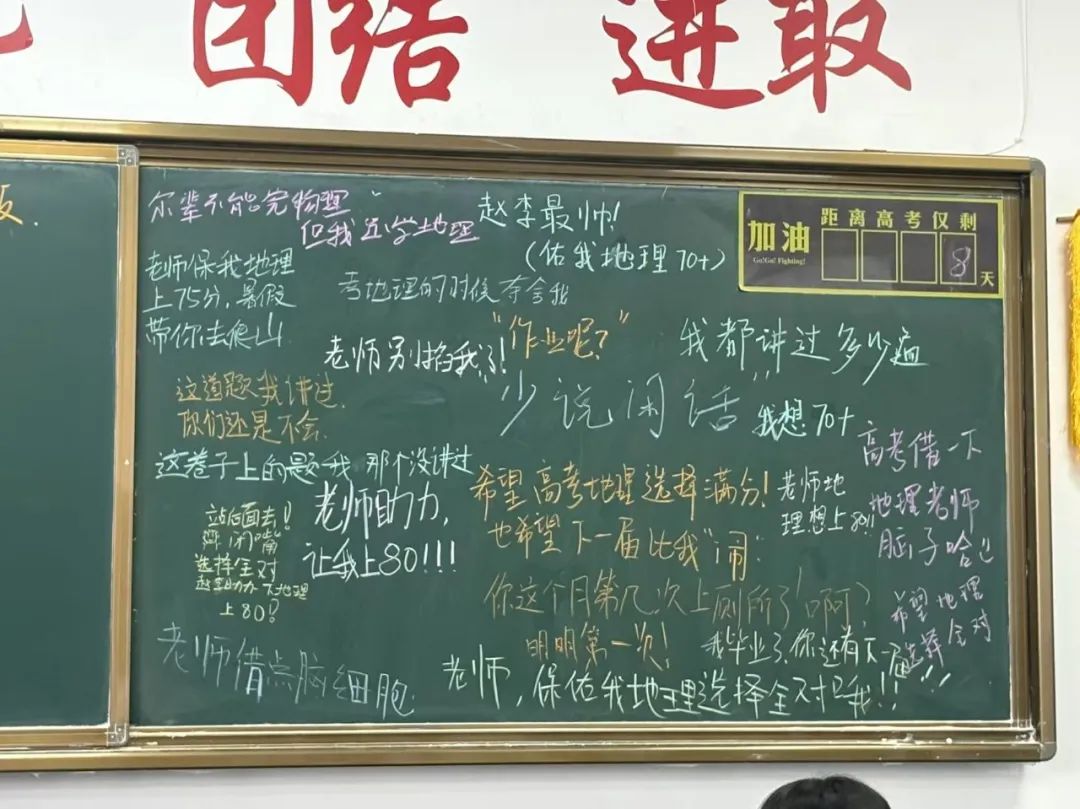 团结 进取
板.
尔辈不能完物理
但我近学地理
赵李最帅!
(佑我地理70+)
加油
Go!Go! Fighting!
距离高考仅剩
8
天
老师保我地理
上75分,暑假
带你去爬山
考地理的时候夺舍我
老师别掐我了!
"作业呢?"
我都讲过多少遍
少说闲话
我想70+
这道题我讲过,
你们还是不会.
这卷子上的题我 那个没讲过
站后面去!
选择全对
下地理
上80?
老师助力,
让我上80!!!
希望高考地理选择满分!
也希望下一届比我"闹"
老师地
理想上80!!
高考借一下
地理老师
脑子哈!!
希望地理
选择全对
你这个月第几次上厕所了啊?
明明第一次!
我毕业了,你还有下一届!!
老师借点脑细胞.
老师,保佑我地理选择全对吧我!!